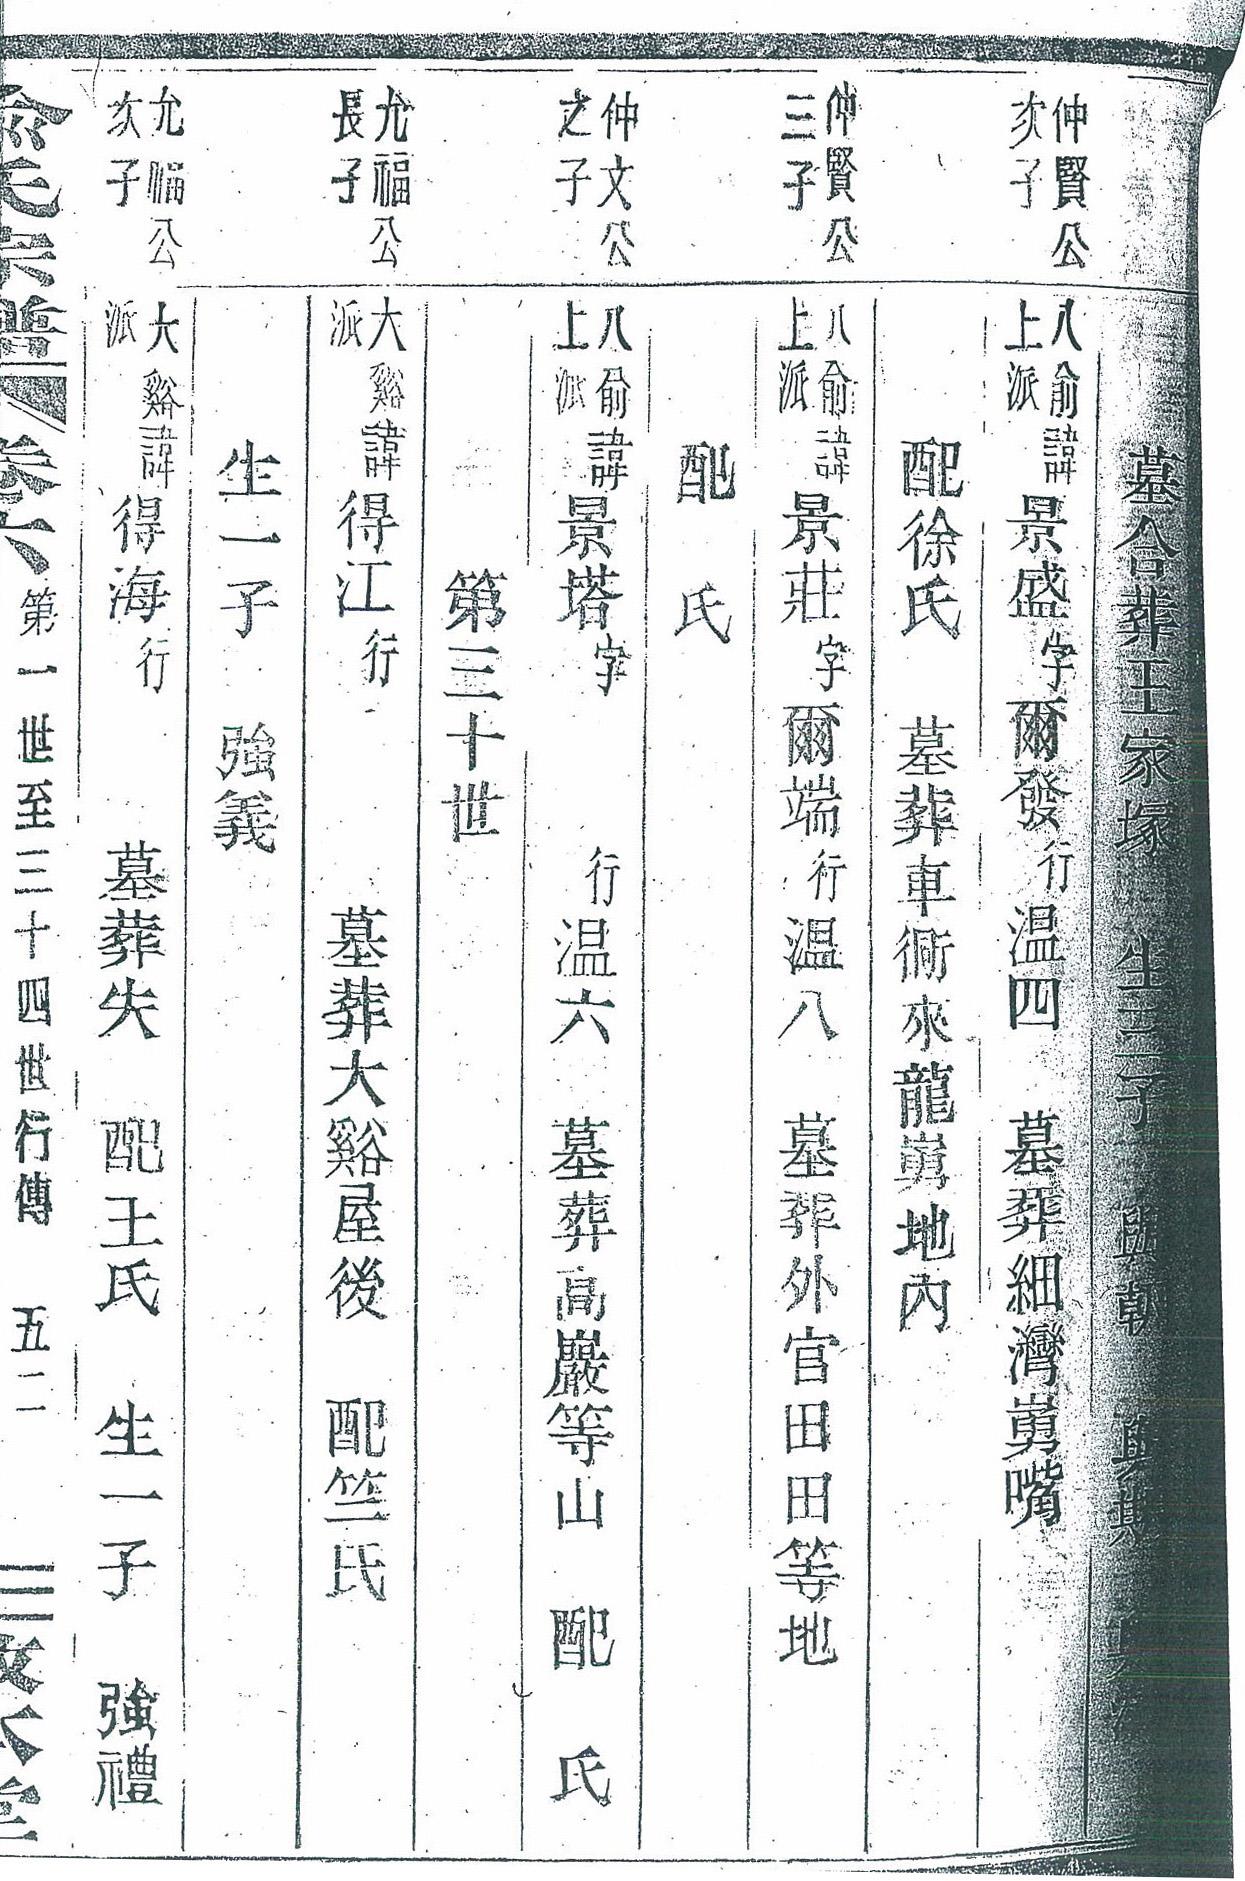 墓合葬王家塚 生三子 興朝 興期
仲賢公
次子
八俞諱景盛字爾發行温四 墓葬細灣嶴嘴
上派
配徐氏 墓葬車衕來龍嶴地內
仲賢公
三子
八俞諱景莊字爾端行温八 墓葬外官田田等地
上派
配 氏
仲文公
之子
八俞諱景塔字 行温六 墓葬高巖等山 配 氏
上派
第三十世
允福公
長子
大谿諱得江行 墓葬大谿屋後 配竺氏
派
生一子 強義
允福公
次子
大谿諱得海行 墓葬失 配王氏 生一子 強禮
派
俞氏宗譜 卷六 第一世至三十四世行傳 五二 敦本堂